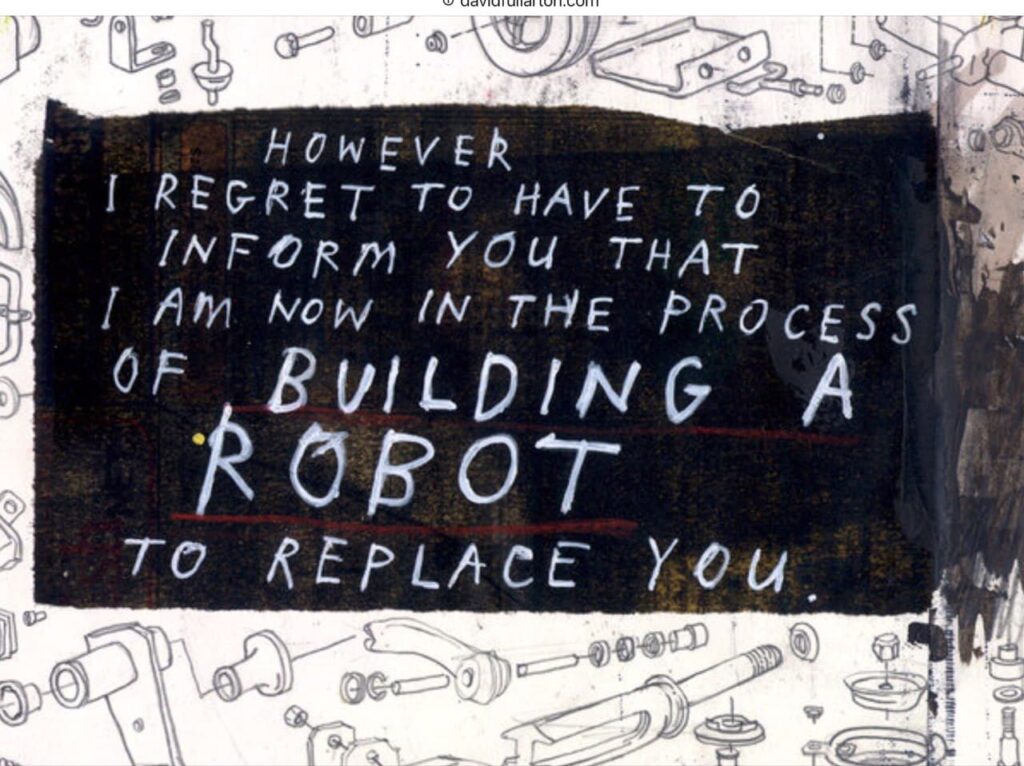 davidfullarton.com
HOWEVER
I REGRET TO HAVE TO
INFORM YOU THAT
I AM NOW IN THE PROCESS
OF BUILDING A
ROBOT
TO REPLACE YOU.